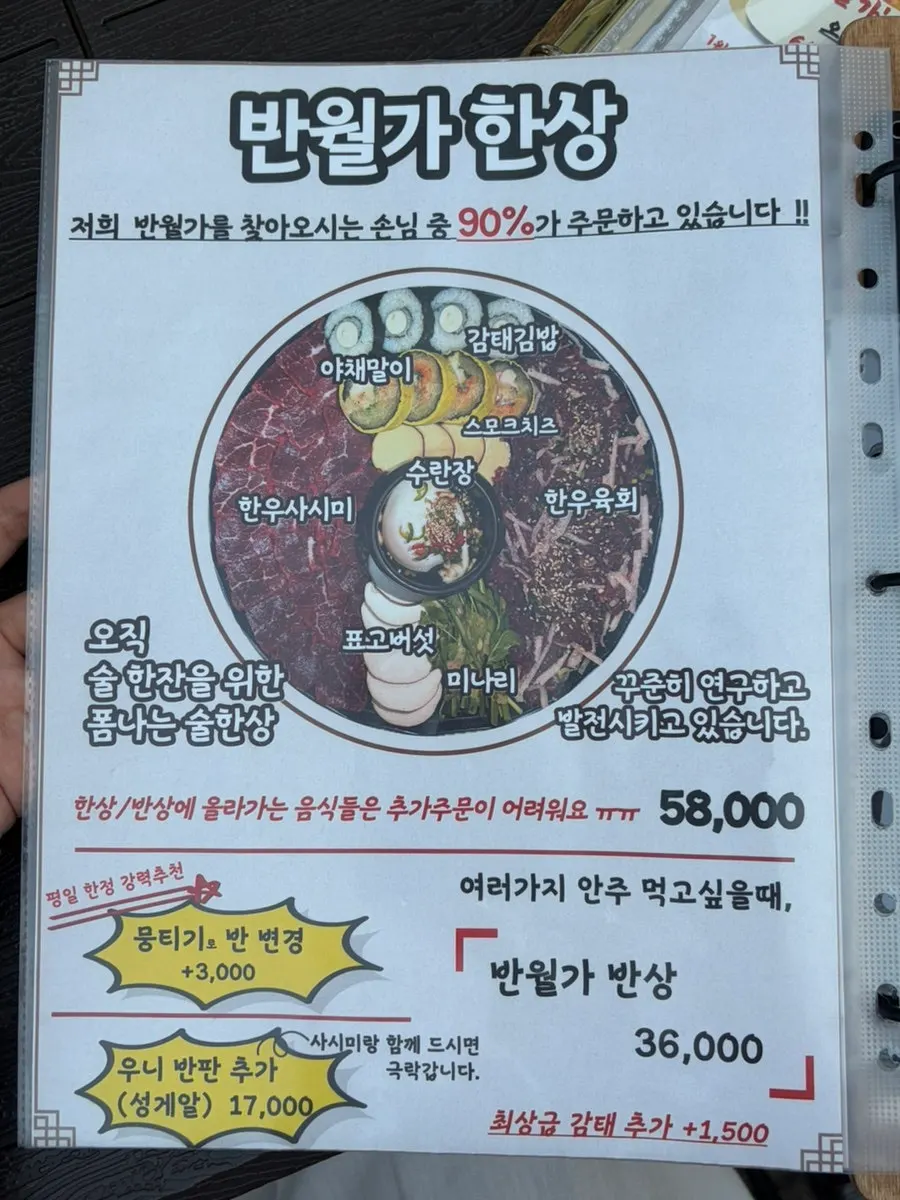 반월가 한상
저희 반월가를 찾아오시는 손님 중 90%가 주문하고 있습니다 !!
감태김밥
야채말이
스모크치즈
수란장
한우사시미
한우육회
표고버섯
미나리
오직
술 한잔을 위한
폼나는 술한상
꾸준히 연구하고
발전시키고 있습니다.
한상/반상에 올라가는 음식들은 추가주문이 어려워요 ㅠㅠ 58,000
평일 한정 강력추천
뭉티기로 반 변경
+3,000
여러가지 안주 먹고싶을때,
반월가 반상
36,000
사시미랑 함께 드시면
극락갑니다.
우니 반판 추가
(성게알) 17,000
최상급 감태 추가 +1,500